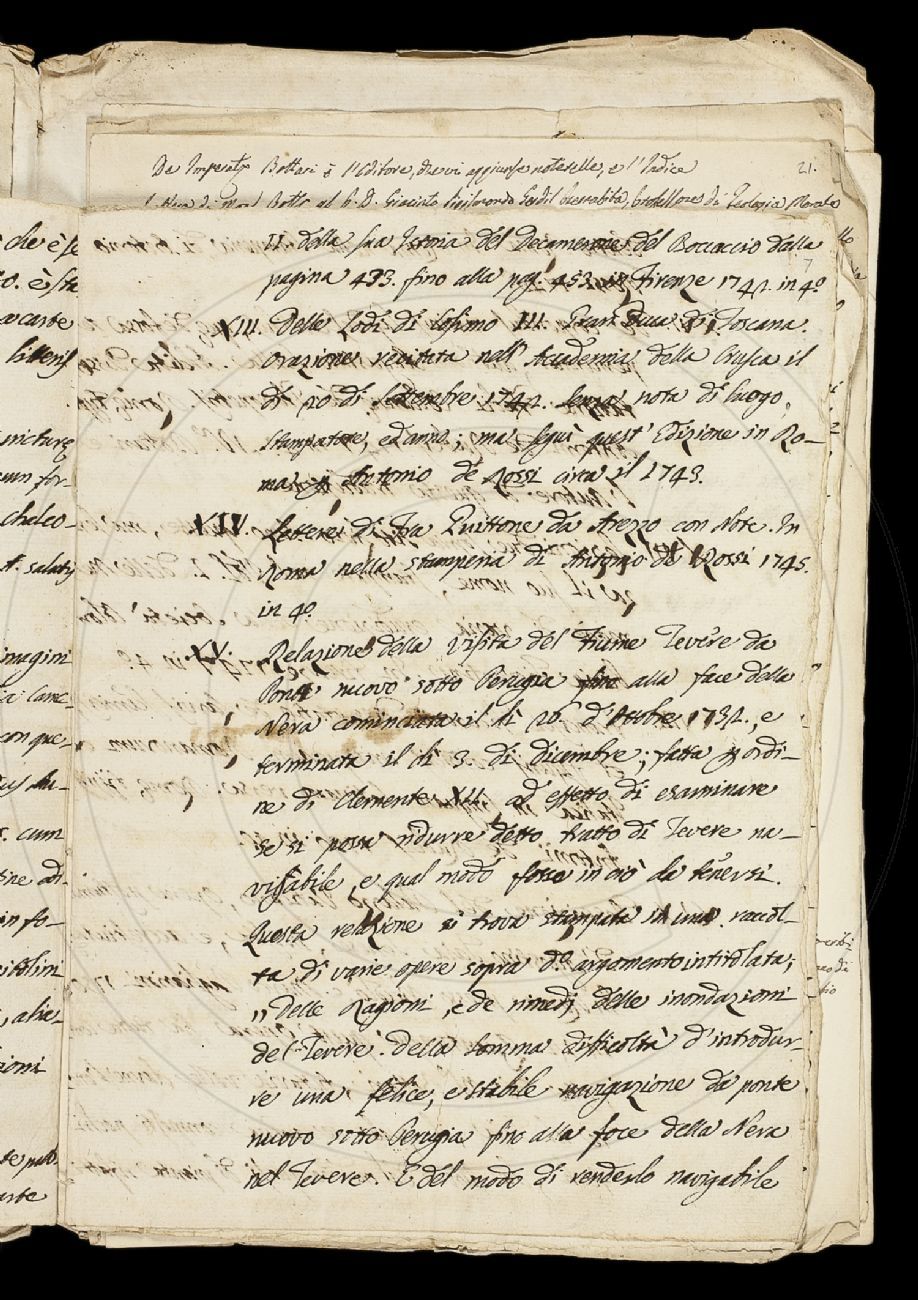 De Imperat. Bottari è l'Editore, che vi aggiunse noterelle, e l'Indice
21.
al P. D. Giacinto Sigismondo Gerdil Barnabita, Professore di Teologia Morale
II della sua Istoria del Decamerone del Boccaccio dalla
pagina 433. fino alla pag. 453. in Firenze 1742. in 4º
7
XIII. Delle Lodi di Cosimo III. Gran Duca di Toscana.
Orazione recitata nell' Accademia della Crusca il
dì 20 di Settembre 1742. Senza nota di luogo,
stampatore, ed anno; ma seguì quest' Edizione in Ro-
ma p Antonio de Rossi circa il 1743.
XIV. Lettere di Fra Guittone da Arezzo con Note. In
Roma nella stamperia di Antonio de Rossi 1745.
in 4º
XV. Relazione della visita del Fiume Tevere da
Ponte nuovo sotto Perugia fino alla foce della
Nera cominciata il dì 26. d'Ottobre 1732., e
terminata il dì 3. di dicembre; fatta p ordi-
ne di Clemente XII. ad effetto di esaminare
se si possa ridurre detto tratto di Tevere na-
vigabile, e qual modo fosse in ciò da tenersi.
Questa relazione si trova stampata in una raccol-
ta di varie opere sopra dº argomento intitolata;
„ Delle Ragioni, e de rimedj delle inondazioni
del Tevere. Della somma difficoltà d'introdur-
re una felice, e stabile navigazione da ponte
nuovo sotto Perugia fino alla foce della Nera
nel Tevere. E del modo di renderlo navigabile
che è se
è sta
carte
litteris
picture
for-
cheleo-
salaty
imagini
Canc-
con que-
cum
in fo-
alia-
zioni
arte